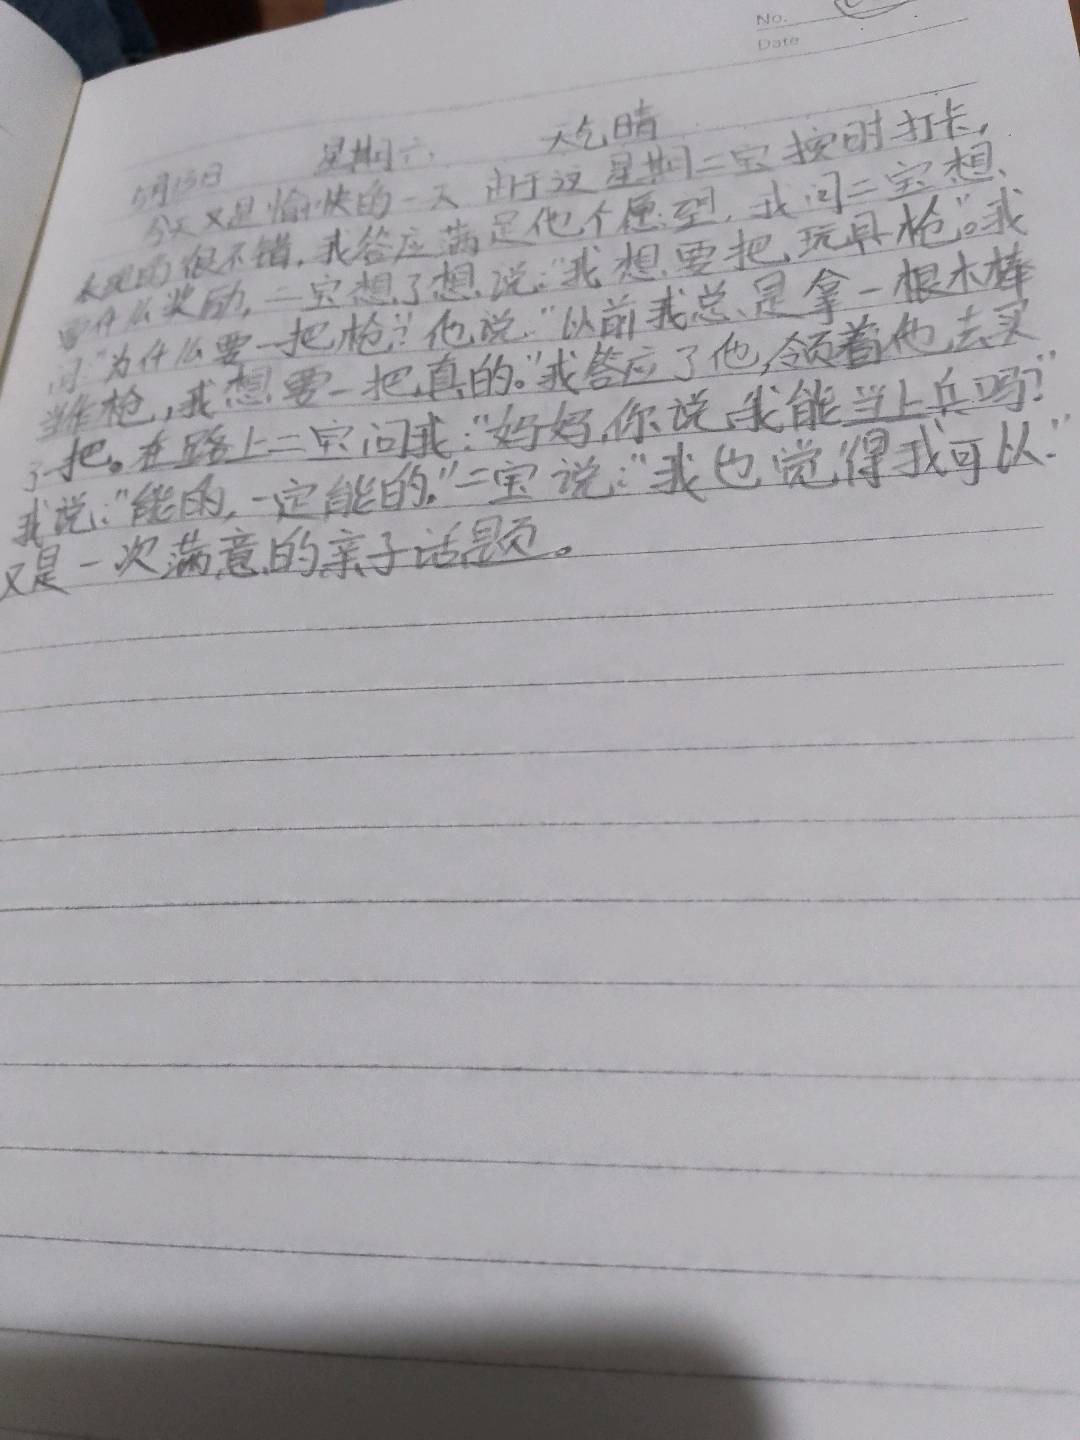 No.
Date
5月13日 星期六 天气晴
今天又是愉快的一天 由于这星期二宝按时打卡,
表现的很不错,我答应满足他个愿望,我问二宝想
要什么奖励,二宝想了想,说:"我想要把玩具枪"。我
问"为什么要一把枪?"他说."以前我总是拿一根木棒
当作枪,我想要一把真的。"我答应了他,领着他去买
了一把。在路上二宝问我:"妈妈,你说我能当上兵吗?"
我说:"能的,一定能的."二宝说:"我也觉得我可以."
又是一次满意的亲子话题。